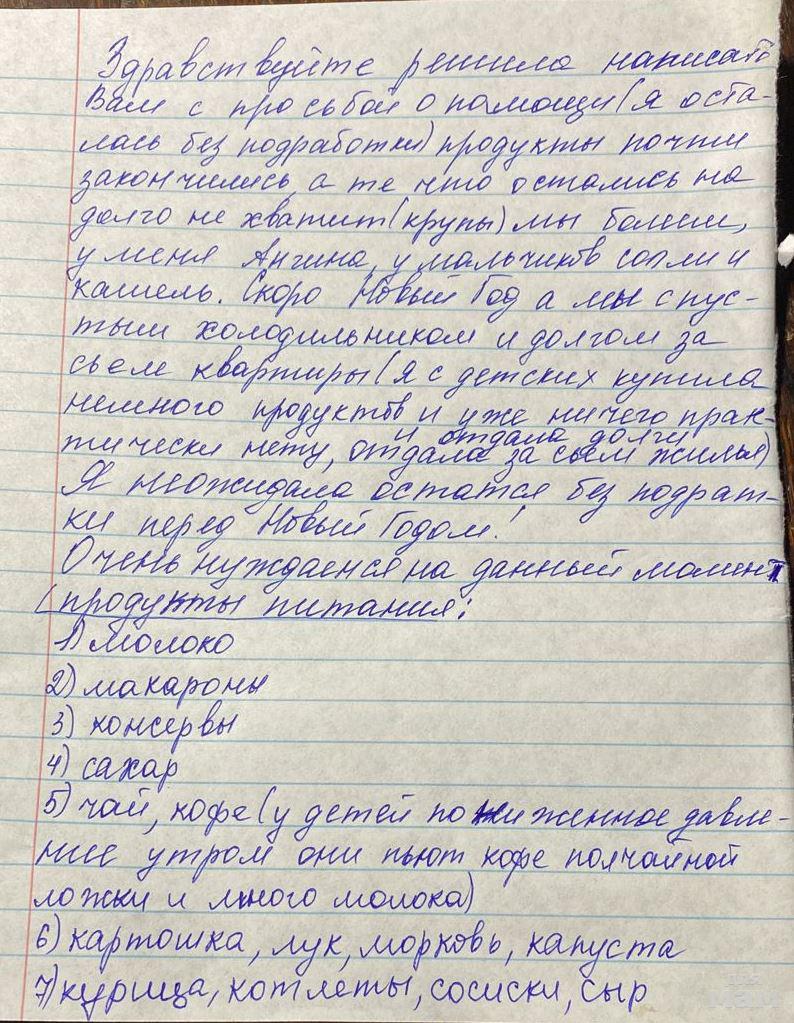 Здравствуйте решила написать
Вам с просьбой о помощи (я оста-
лась без подработки) продукты почти
закончились, а те что остались на
долго не хватит (крупы) мы болеем,
у меня Ангина, у мальчиков сопли и
кашель. Скоро Новый Год а мы с пус-
тым холодильником и долгом за
сьем квартиры (я с детских купила
немного продуктов и уже ничего прак-
и отдала долги
тически нету, отдала за сьем жилья)
Я неожидала остатся без подрат-
ки перед Новый Годом!
Очень нуждаемся на данный момент
(продукты питания:
1) молоко
2) макароны
3) консервы
4) сахар
5) чай, кофе (у детей пониженное давле-
ние утром они пьют кофе полчайной
ложки и много молока)
6) картошка, лук, морковь, капуста
7) курица, котлеты, сосиски, сыр